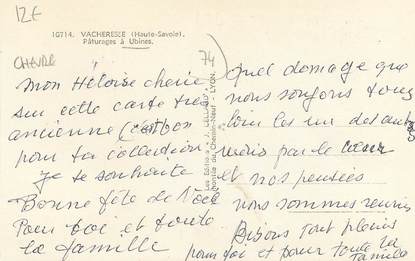 12E
CHEVRE
10714. VACHERESSE (Haute-Savoie).
Pâturages à Ubines.
74
mon Héloïse cherie
sur cette carte très
ancienne (c'est bon
pour ta collection
je te souhaite
Bonne fête de Noël
Pour toi et toute
la famille
Quel domage que
nous soyons tous
loin les un des autres
mais par le cœur
et nos pensées
nous sommes reunis
Bisous tout pleins
pour toi et pour toute la
famille
Les Editions "J. CELLARD"
du Chemin-Neuf - LYON.